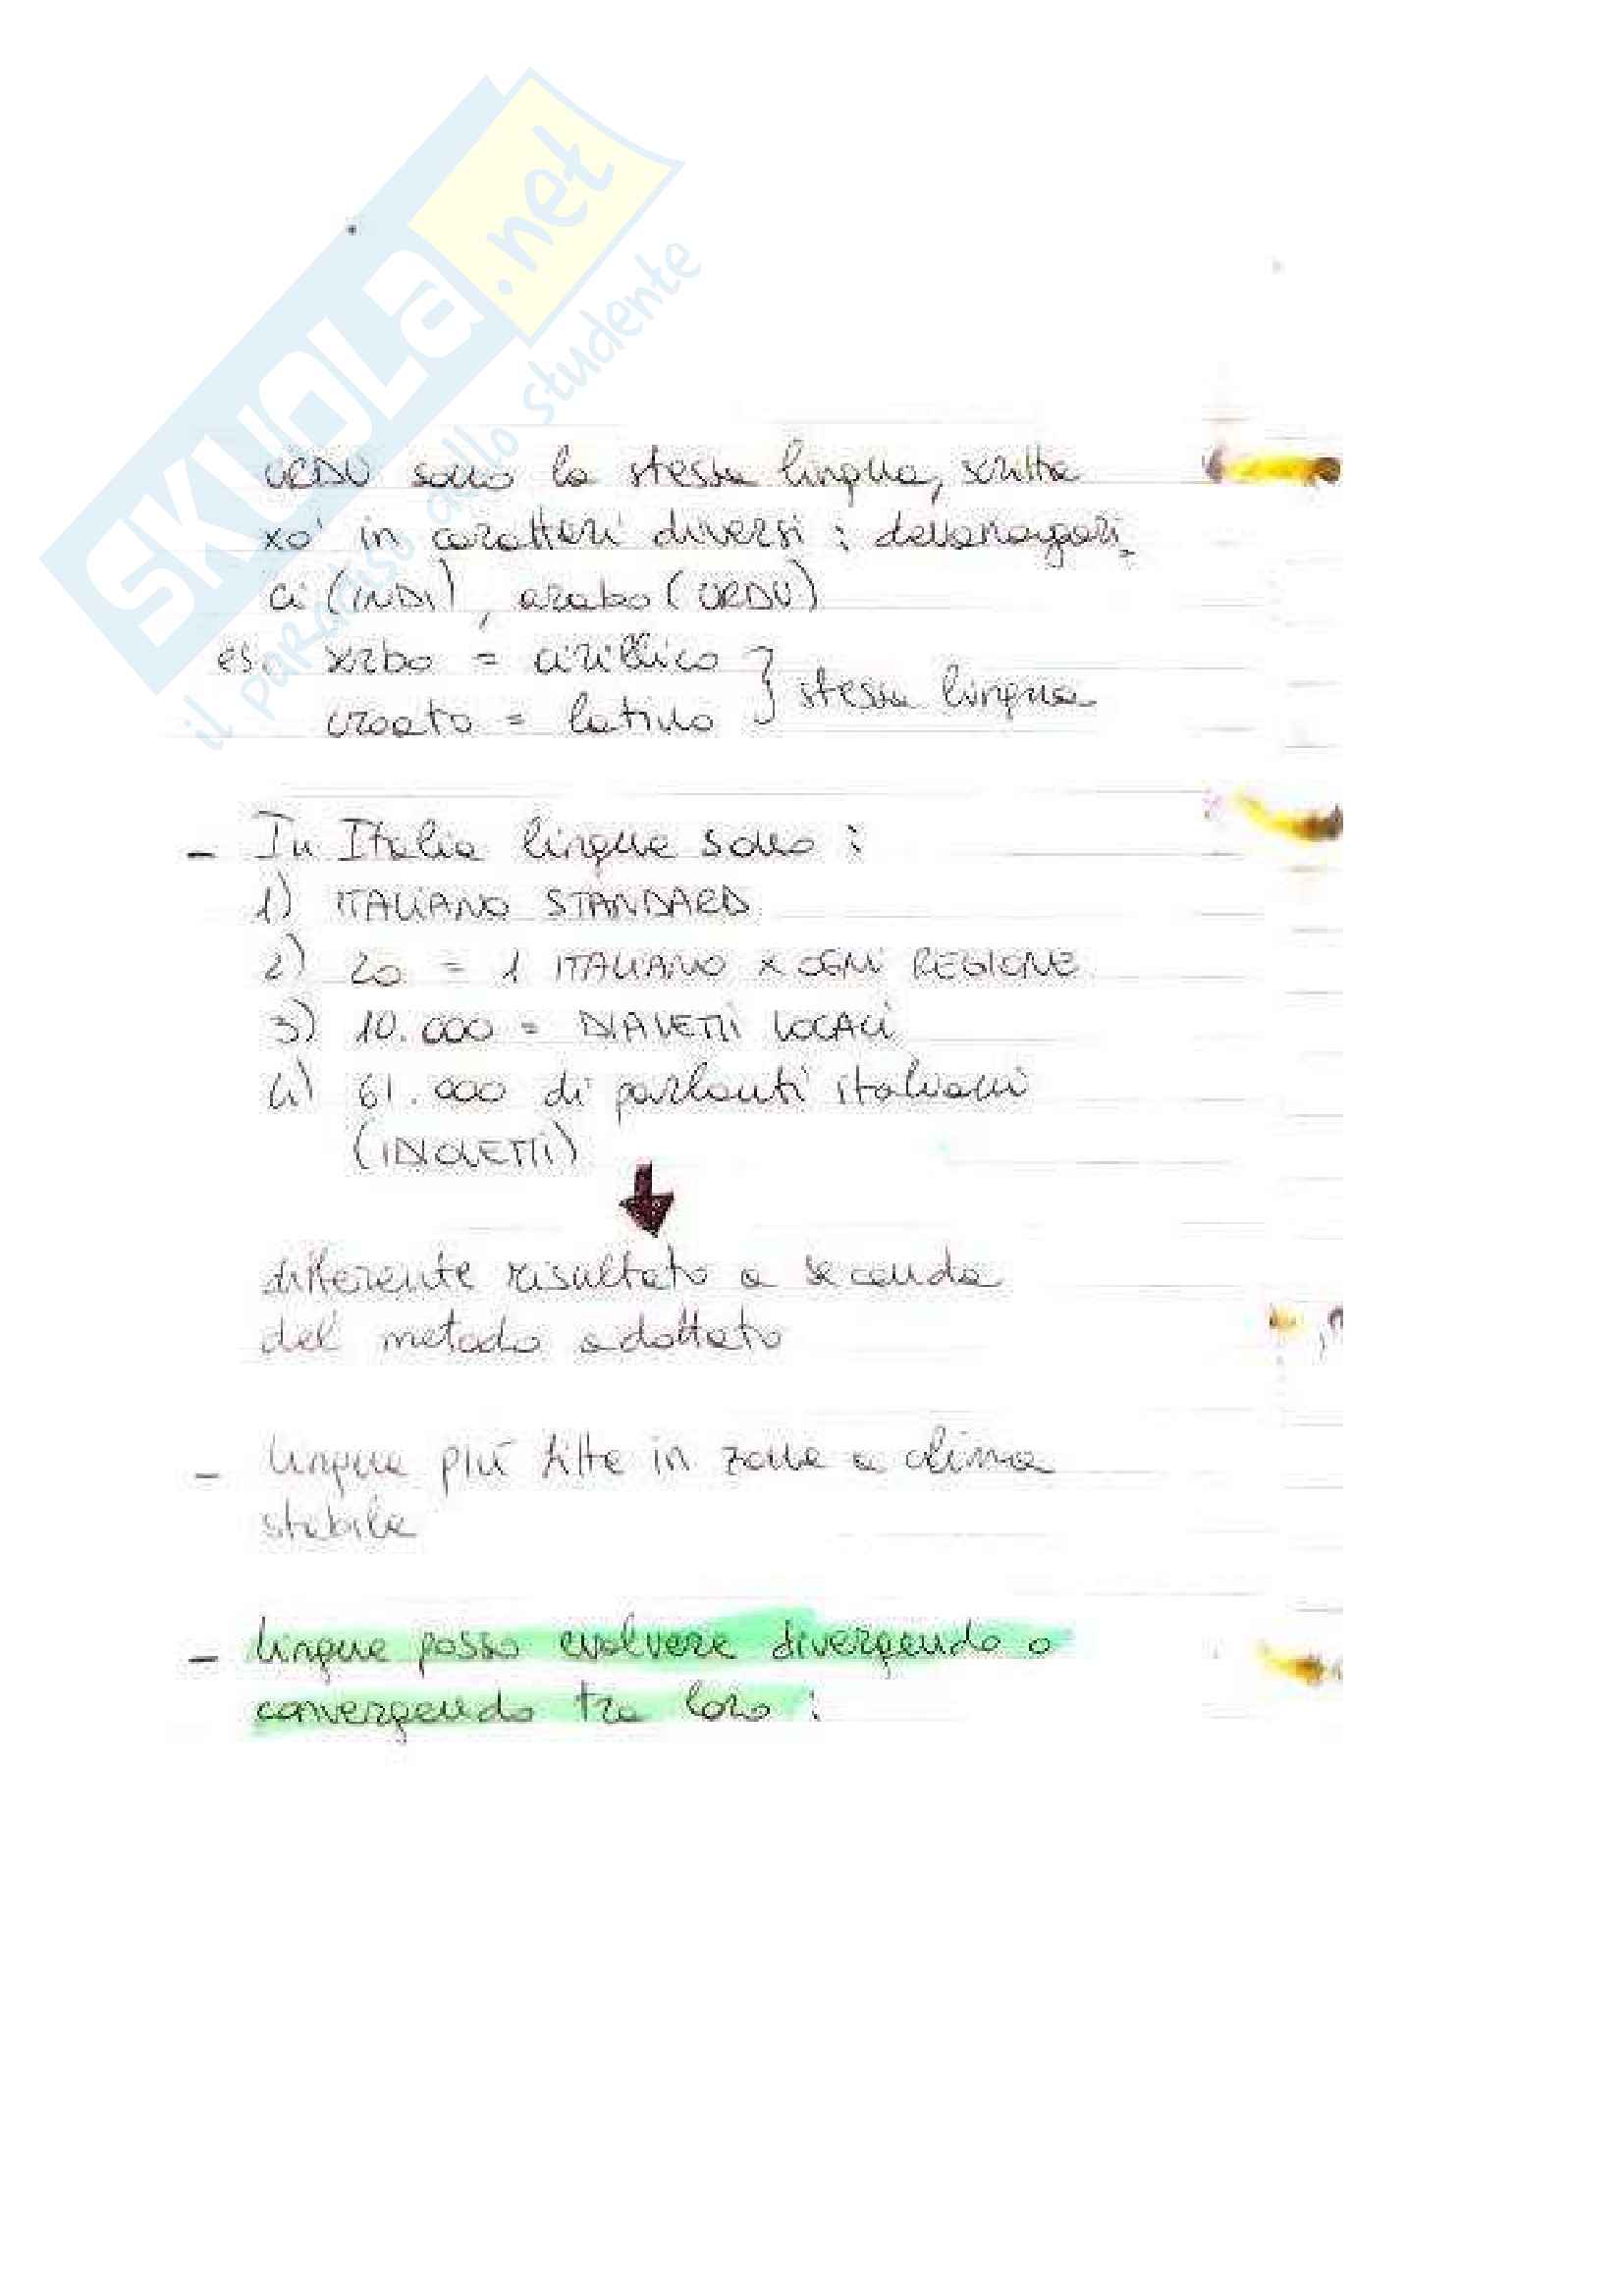 SKUOLA.net
il paradiso dello studente
URDU sono la stessa lingua, scritta
xò in caratteri diversi: devanagari=
ci (INDI), arabo (URDU)
es. serbo = cirillico } stessa lingua
croato = latino
- In Italia lingue sono:
1) ITALIANO STANDARD
2) 20 = 1 ITALIANO x OGNI REGIONE
3) 10.000 = DIALETTI LOCALI
4) 61.000 di parlanti italiani
(IDIOLETTI)
differente risultato a seconda
del metodo adottato
- lingue più fitte in zone a clima
stabile
- lingue posso evolvere divergendo o
convergendo tra loro: